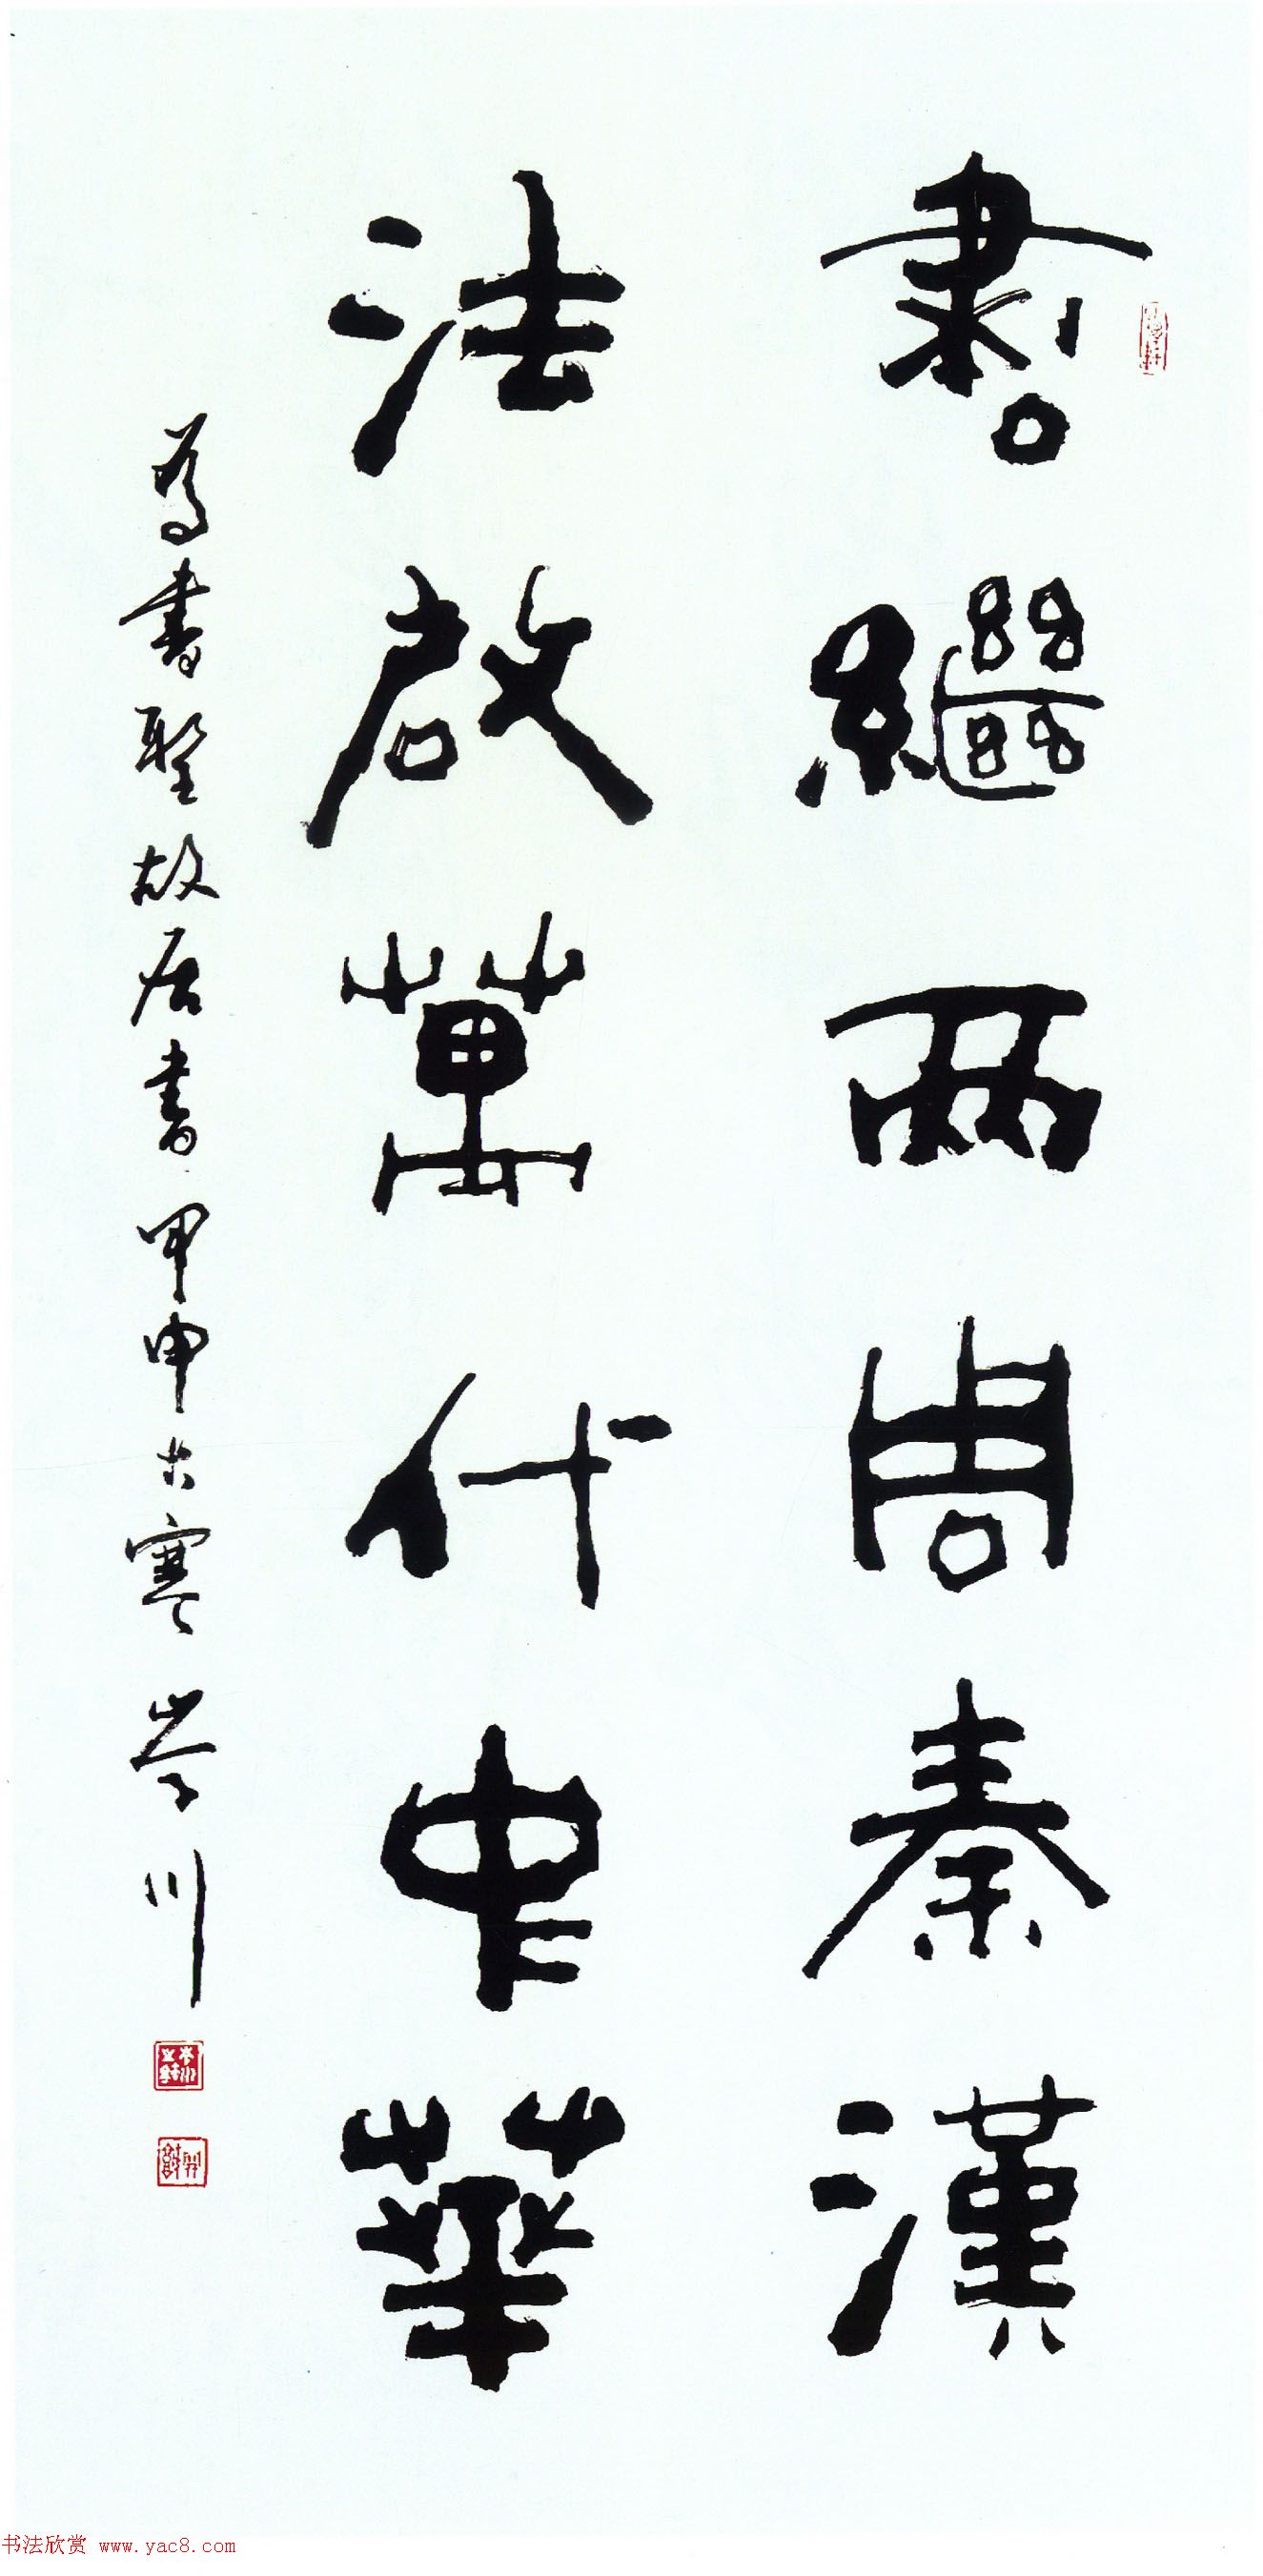 書繼兩周秦漢
法啟萬代中華
為書聖故居書 甲申大寒 岑川
书法欣赏 www.yac8.com